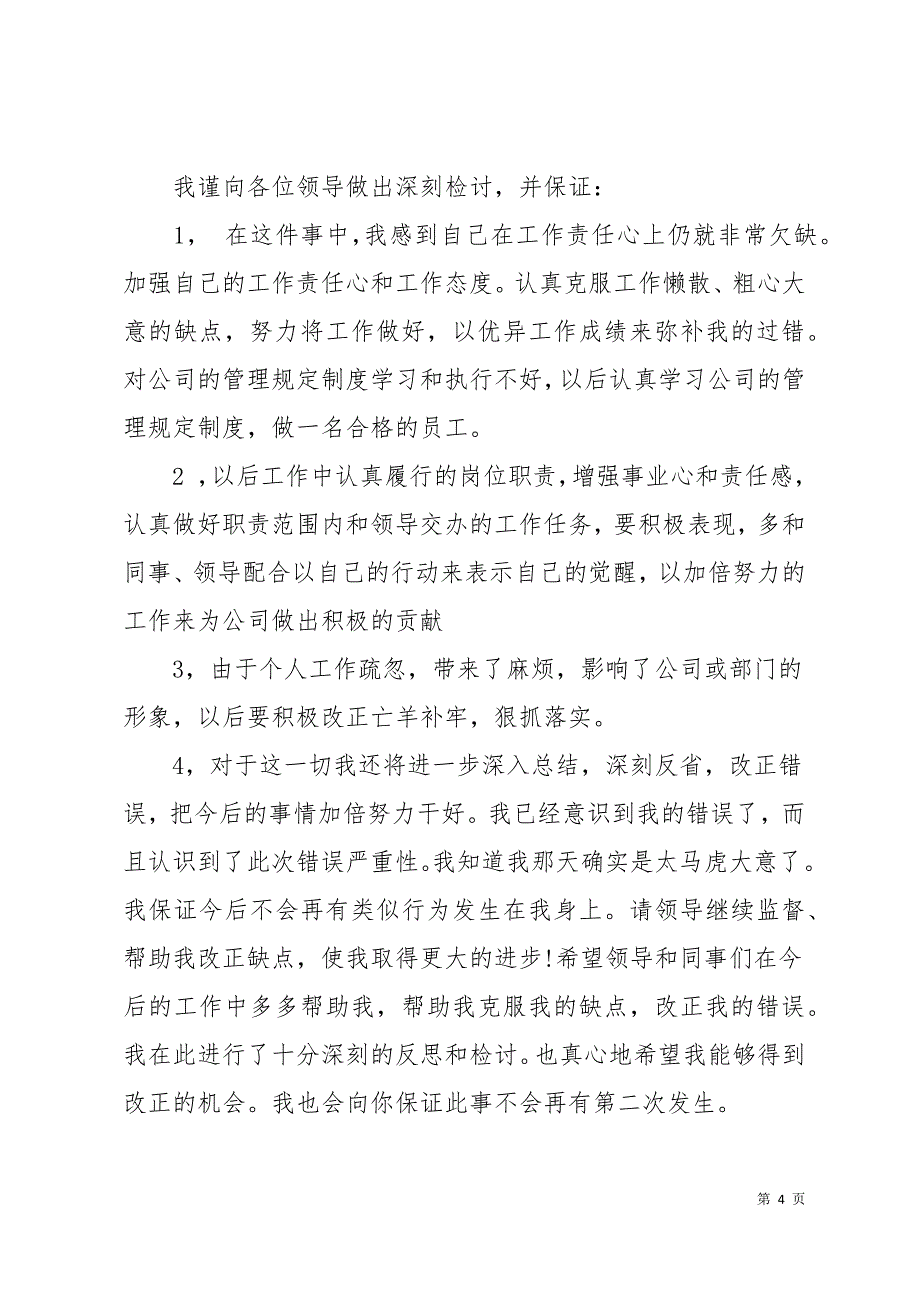 我谨向各位领导做出深刻检讨，并保证：
1， 在这件事中，我感到自己在工作责任心上仍就非常欠缺。
加强自己的工作责任心和工作态度。认真克服工作懒散、粗心大
意的缺点，努力将工作做好，以优异工作成绩来弥补我的过错。
对公司的管理规定制度学习和执行不好，以后认真学习公司的管
理规定制度，做一名合格的员工。
2 ,以后工作中认真履行的岗位职责，增强事业心和责任感，
认真做好职责范围内和领导交办的工作任务，要积极表现，多和
同事、领导配合以自己的行动来表示自己的觉醒，以加倍努力的
工作来为公司做出积极的贡献
3，由于个人工作疏忽，带来了麻烦，影响了公司或部门的
形象，以后要积极改正亡羊补牢，狠抓落实。
4，对于这一切我还将进一步深入总结，深刻反省，改正错
误，把今后的事情加倍努力干好。我已经意识到我的错误了，而
且认识到了此次错误严重性。我知道我那天确实是太马虎大意了。
我保证今后不会再有类似行为发生在我身上。请领导继续监督、
帮助我改正缺点，使我取得更大的进步!希望领导和同事们在今
后的工作中多多帮助我，帮助我克服我的缺点，改正我的错误。
我在此进行了十分深刻的反思和检讨。也真心地希望我能够得到
改正的机会。我也会向你保证此事不会再有第二次发生。
第 4 页